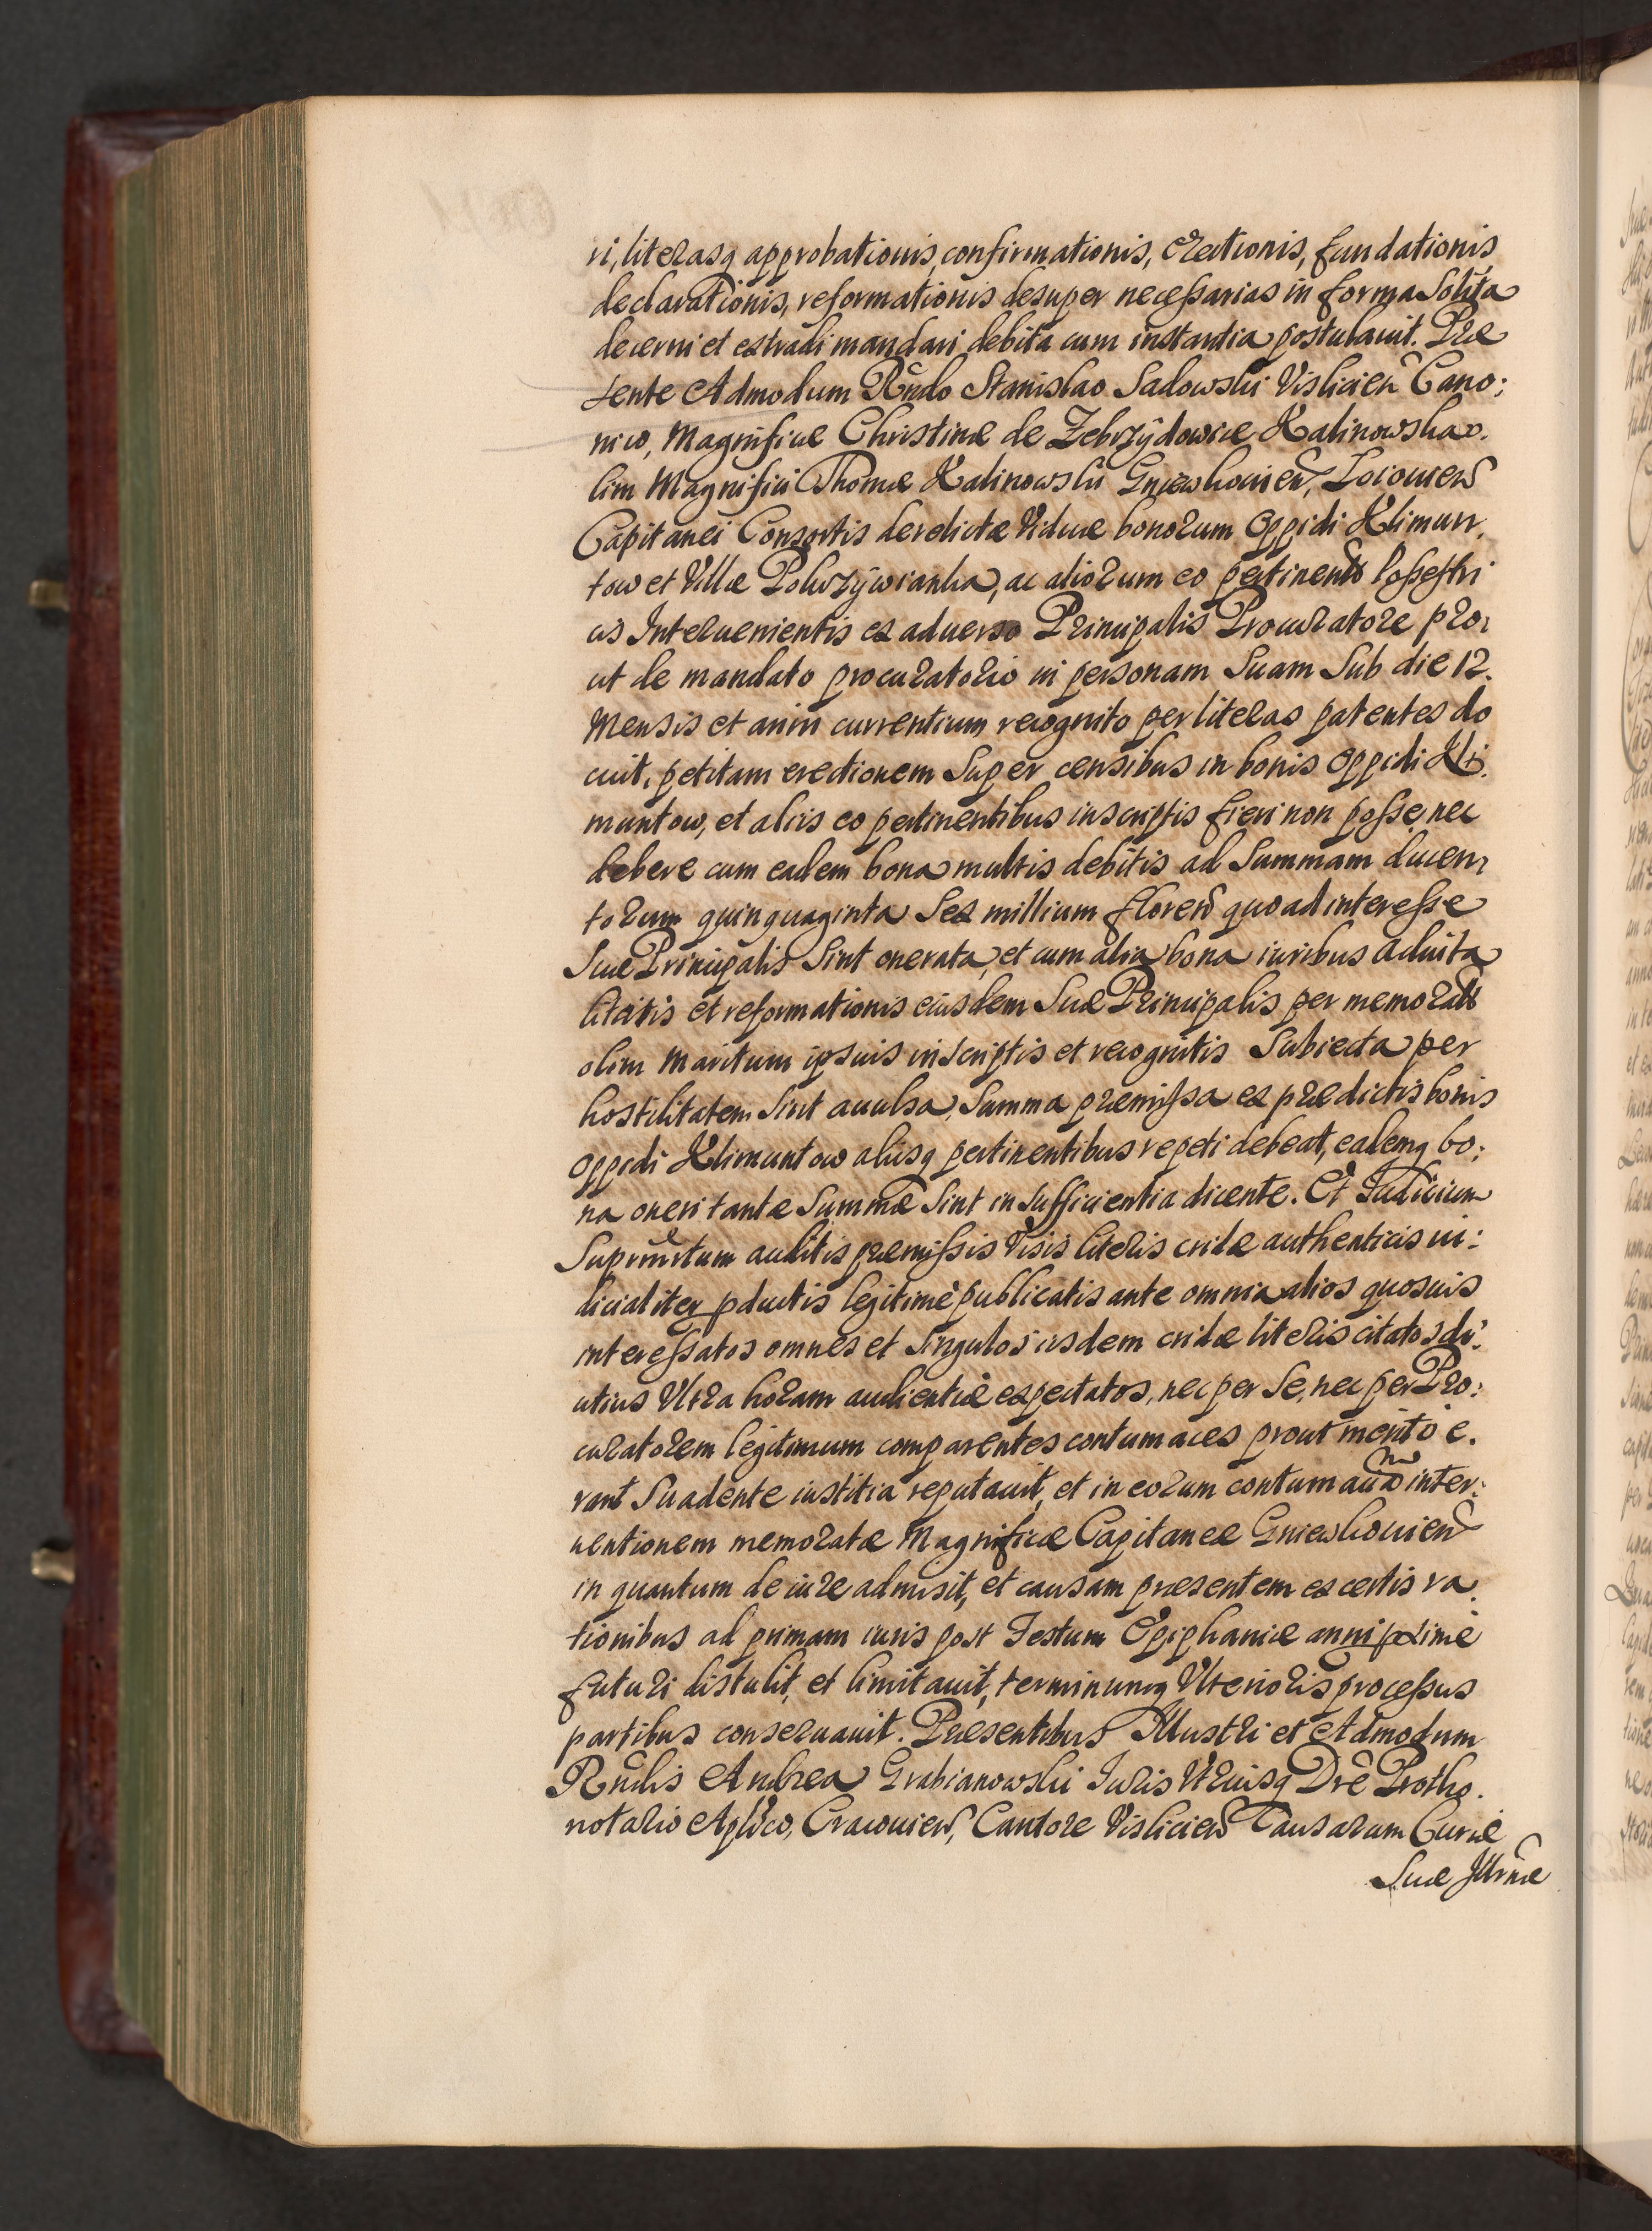 ri, literasq approbationis, confirmationis, erectionis, fundationis
declarationis, reformationis desuper necessarias in forma Solita
decerni et extradi mandari debita cum instantia postulauit. Præ
sente Admodum Rndo Stanislao Sadowski Visliciens Cano:
nico, Magnificæ Christinæ de Zebrzydowice Kalinowska o.
lim Magnifici Thomæ Kalinowski Gniewkouien, Loiouien
Capitanei Consortis derelictæ Viduæ bonorum Oppidi Klimun,
tow et Villæ Pokrzywianka, ac aliorum eo pertinen Possessri
cis Interuenientis ex aduerso Principalis Procuratore pro,
ut de mandato procuratorio in personam Suam Sub die 12.
Mensis et anni currentium recognito per literas patentes do
cuit, petitam erectionem Super censibus in bonis Oppidi Kli.
muntow, et aliis eo pertinentibus inscriptis fieri non posse, nec
debere cum eadem bona multis debitis ad Summam ducen,
torum quinquaginta Sex millium floren quoad interesse
Suæ Principalis Sint onerata, et cum alia bona iuribus aduita
litatis et reformationis eiusdem Suæ Principalis per memorat
olim Maritum ipsius inscriptis et recognitis Subiecta per
hostilitatem Sint auulsa, Summa præmissa ex prædictis bonis
Oppidi Klimuntow aliisq pertinentibus repeti debeat, eademq bo:
na oneri tantæ Summæ Sint insufficientia dicente. Et Iudicium
auditis præmissis Visis literis cridæ authenticis iu:
dicialiter pductis legitimè publicatis ante omnia alios quosuis
interessatos omnes et Singulos iisdem cridæ literis citatos di:
utius Vltra horam audientiæ expectatos, nec per Se, nec per Pro:
curatorem legitimum comparentes contumaces prout meritò e.
rant Suadente iustitia reputauit, et in eorum contumam inter:
uentionem memoratæ Magnificæ Capitaneæ Gniewkouien
in quantum de iure admisit, et causam præsentem ex certis ra.
tionibus ad primam iuris post Festum Epiphaniæ anni pximè
futuri distulit, et limitauit, terminumq Vlterioris processus
partibus conseruauit. Præsentibus Illustri et Admodum
Rndis Andrea Grabianowski Iuris Vtriusq Dre Protho.
notario Aplico, Cracouien, Cantore Vislicien Causarum Curiæ
Suæ Illrmæ